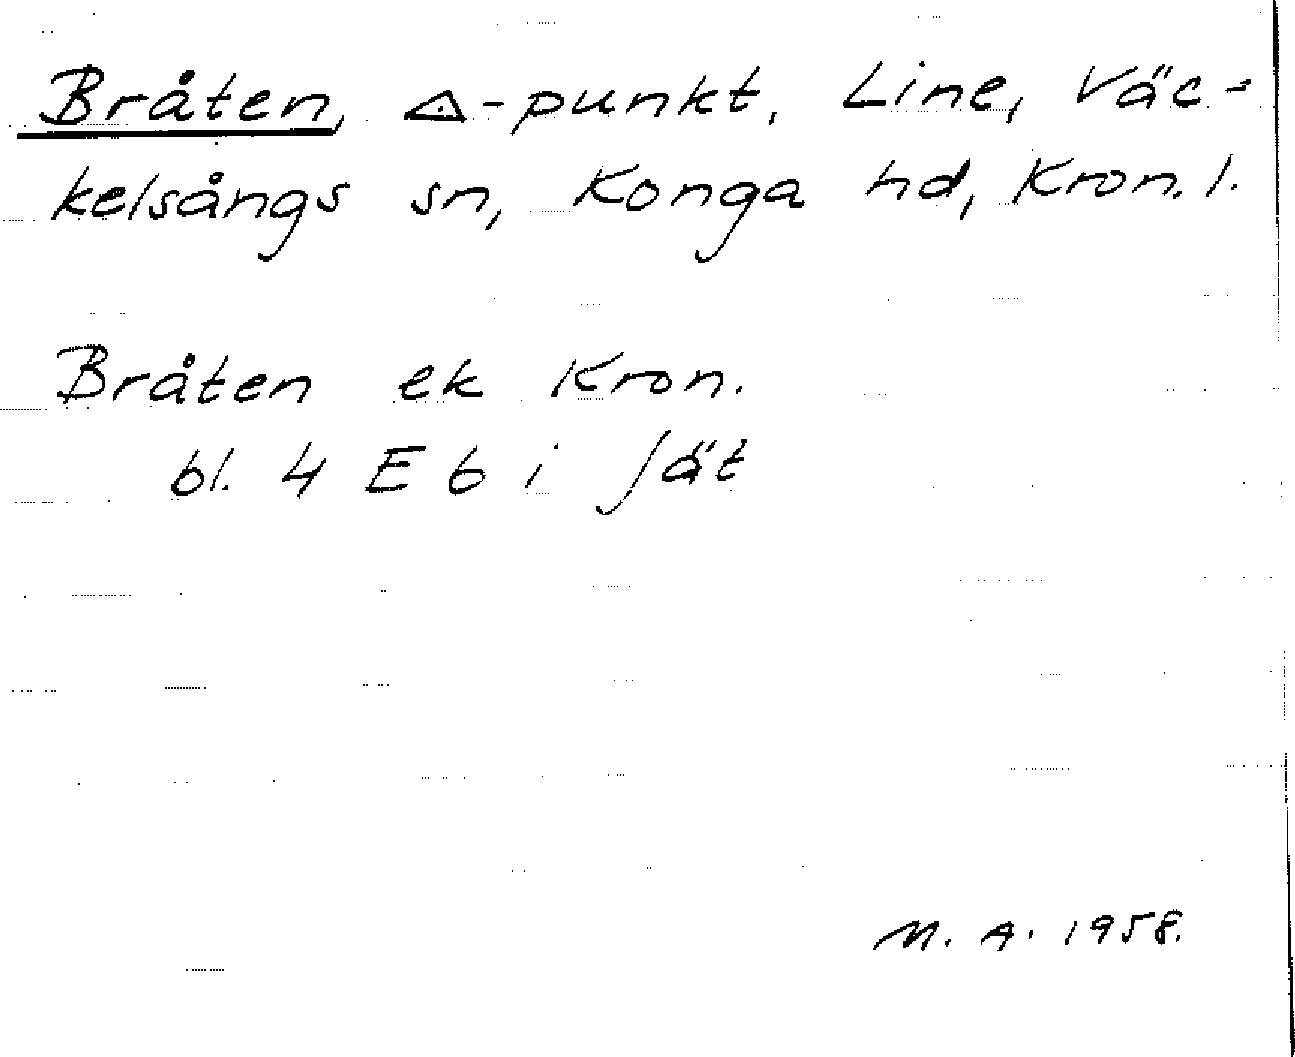 Bråten, △-punkt, Line, Väc-
kelsångs sn, Konga hd, Kron. l.
Bråten ek Kron.
bl. 4 E 6 i Jät
M. A. 1958.